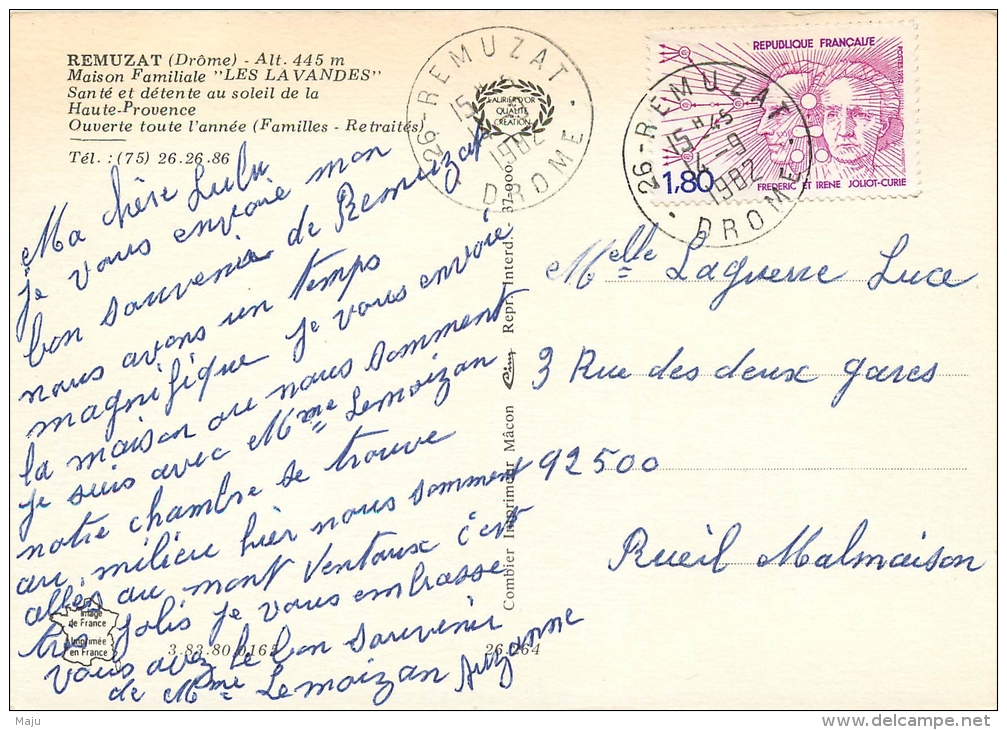 REMUZAT (Drôme) - Alt. 445 m
Maison Familiale "LES LAVANDES"
Santé et détente au soleil de la
Haute-Provence
Ouverte toute l'année (Familles - Retraités)
Tél. : (75) 26.26.86
26-REMUZAT
15 H
1982
DROME
LAURIER D'OR
DE LA
QUALITÉ
CRÉATION
REPUBLIQUE FRANÇAISE
POSTES 1982
1,80
FREDERIC ET IRENE JOLIOT-CURIE
26-REMUZAT
15 H 45
4-9
1982
DROME
Ma chère Lulu
Je vous envoie mon
bon souvenir de Remuzat
nous avons un temps
magnifique je vous envoie
la maison ou nous somment
je suis avec Mme Lemoizan
notre chambre se trouve
au milieu hier nous somment
allés au mont Ventoux c'est
très jolis je vous embrasse
vous avez le bon souvenir
de Mme Lemoizan Suzanne
Combier Imprimeur Mâcon Cim Repr. Interd. - 37-000
Melle Laguerre Luce
3 Rue des deux gares
92500
Rueil Malmaison
Image
de France
Imprimée
en France
3.83.80.0165
26.264
Maju
delcampe.net